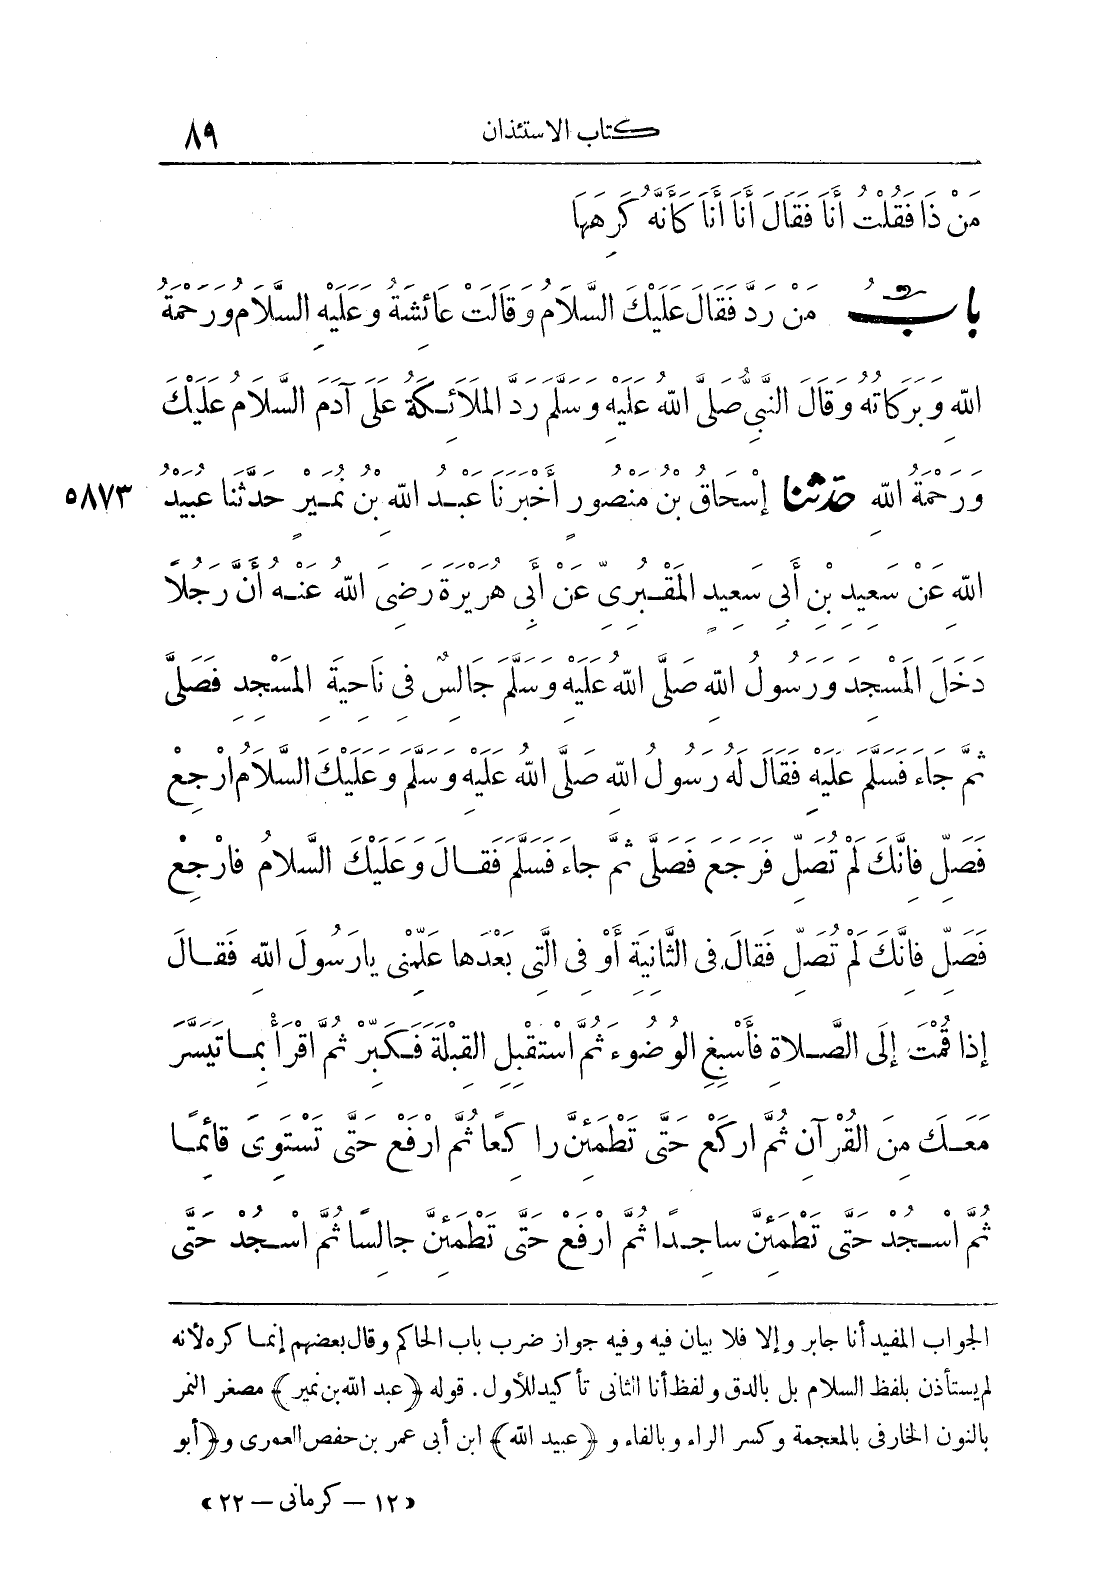 كتاب الاستئذان ٨٩
مَنْ ذَا فَقُلْتُ أَنَا فَقَالَ أَنَا أَنَا كَأَنَّهُ كَرِهَهَا
بَابُ مَنْ رَدَّ فَقَالَ عَلَيْكَ السَّلَامُ وَقَالَتْ عَائِشَةُ وَعَلَيْهِ السَّلَامُ وَرَحْمَةُ
اللهِ وَبَرَكَاتُهُ وَقَالَ النَّبِيُّ صَلَّى اللهُ عَلَيْهِ وَسَلَّمَ رَدَّ الْمَلَائِكَةُ عَلَى آدَمَ السَّلَامُ عَلَيْكَ
وَرَحْمَةُ اللهِ حَدَّثَنَا إِسْحَاقُ بْنُ مَنْصُورٍ أَخْبَرَنَا عَبْدُ اللهِ بْنُ نُمَيْرٍ حَدَّثَنَا عُبَيْدُ ٥٨٧٣
اللهِ عَنْ سَعِيدِ بْنِ أَبِى سَعِيدٍ الْمَقْبُرِىِّ عَنْ أَبِى هُرَيْرَةَ رَضِىَ اللهُ عَنْهُ أَنَّ رَجُلًا
دَخَلَ الْمَسْجِدَ وَرَسُولُ اللهِ صَلَّى اللهُ عَلَيْهِ وَسَلَّمَ جَالِسٌ فِى نَاحِيَةِ الْمَسْجِدِ فَصَلَّى
ثُمَّ جَاءَ فَسَلَّمَ عَلَيْهِ فَقَالَ لَهُ رَسُولُ اللهِ صَلَّى اللهُ عَلَيْهِ وَسَلَّمَ وَعَلَيْكَ السَّلَامُ ارْجِعْ
فَصَلِّ فَانَّكَ لَمْ تُصَلِّ فَرَجَعَ فَصَلَّى ثُمَّ جَاءَ فَسَلَّمَ فَقَالَ وَعَلَيْكَ السَّلَامُ فَارْجِعْ
فَصَلِّ فَانَّكَ لَمْ تُصَلِّ فَقَالَ فِى الثَّانِيَةِ أَوْ فِى الَّتِى بَعْدَهَا عَلِّمْنِى يَا رَسُولَ اللهِ فَقَالَ
إِذَا قُمْتَ إِلَى الصَّلَاةِ فَأَسْبِغِ الْوُضُوءَ ثُمَّ اسْتَقْبِلِ الْقِبْلَةَ فَكَبِّرْ ثُمَّ اقْرَأْ بِمَا تَيَسَّرَ
مَعَكَ مِنَ الْقُرْآنِ ثُمَّ ارْكَعْ حَتَّى تَطْمَئِنَّ رَاكِعًا ثُمَّ ارْفَعْ حَتَّى تَسْتَوِىَ قَائِمًا
ثُمَّ اسْجُدْ حَتَّى تَطْمَئِنَّ سَاجِدًا ثُمَّ ارْفَعْ حَتَّى تَطْمَئِنَّ جَالِسًا ثُمَّ اسْجُدْ حَتَّى
الجواب المفيد أنا جابر وإلا فلا بيان فيه وفيه جواز ضرب باب الحاكم وقال بعضهم إنما كره لأنه
لم يستأذن بلفظ السلام بل بالدق ولفظ أنا الثانى تأكيد للأول. قوله ﴿عبد الله بن نمير﴾ مصغر النمر
بالنون الخارفى بالمعجمة وكسر الراء وبالفاء و ﴿عبيد الله﴾ ابن أبى عمر بن حفص العمرى و﴿أبو
«١٢ – كرمانى – ٢٢»